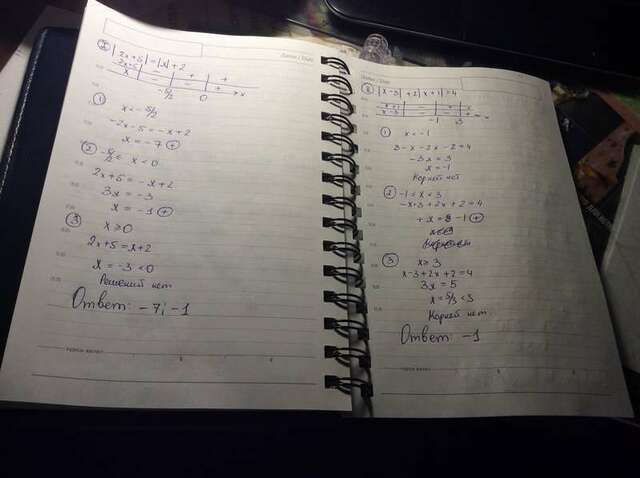 |2x+5|=|x|+2
-5/2 0 x
① x<-5/2
-2x-5=-x+2
x=-7 ⊕
② -5/2≤ x<0
2x+5=-x+2
3x=-3
x=-1 ⊕
③ x≥0
2x+5=x+2
x=-3<0
Решений нет
Ответ: -7; -1
|x-3|+2|x+1|=4
x+1 - + +
x-3 - - +
-1 3 x
① x<-1
3-x-2x-2=4
-3x=3
x=-1
Корней нет
② -1≤x<3
-x+3+2x+2=4
x=-1 ⊕
③ x≥3
x-3+2x+2=4
3x=5
x=5/3<3
Корней нет
Ответ: -1